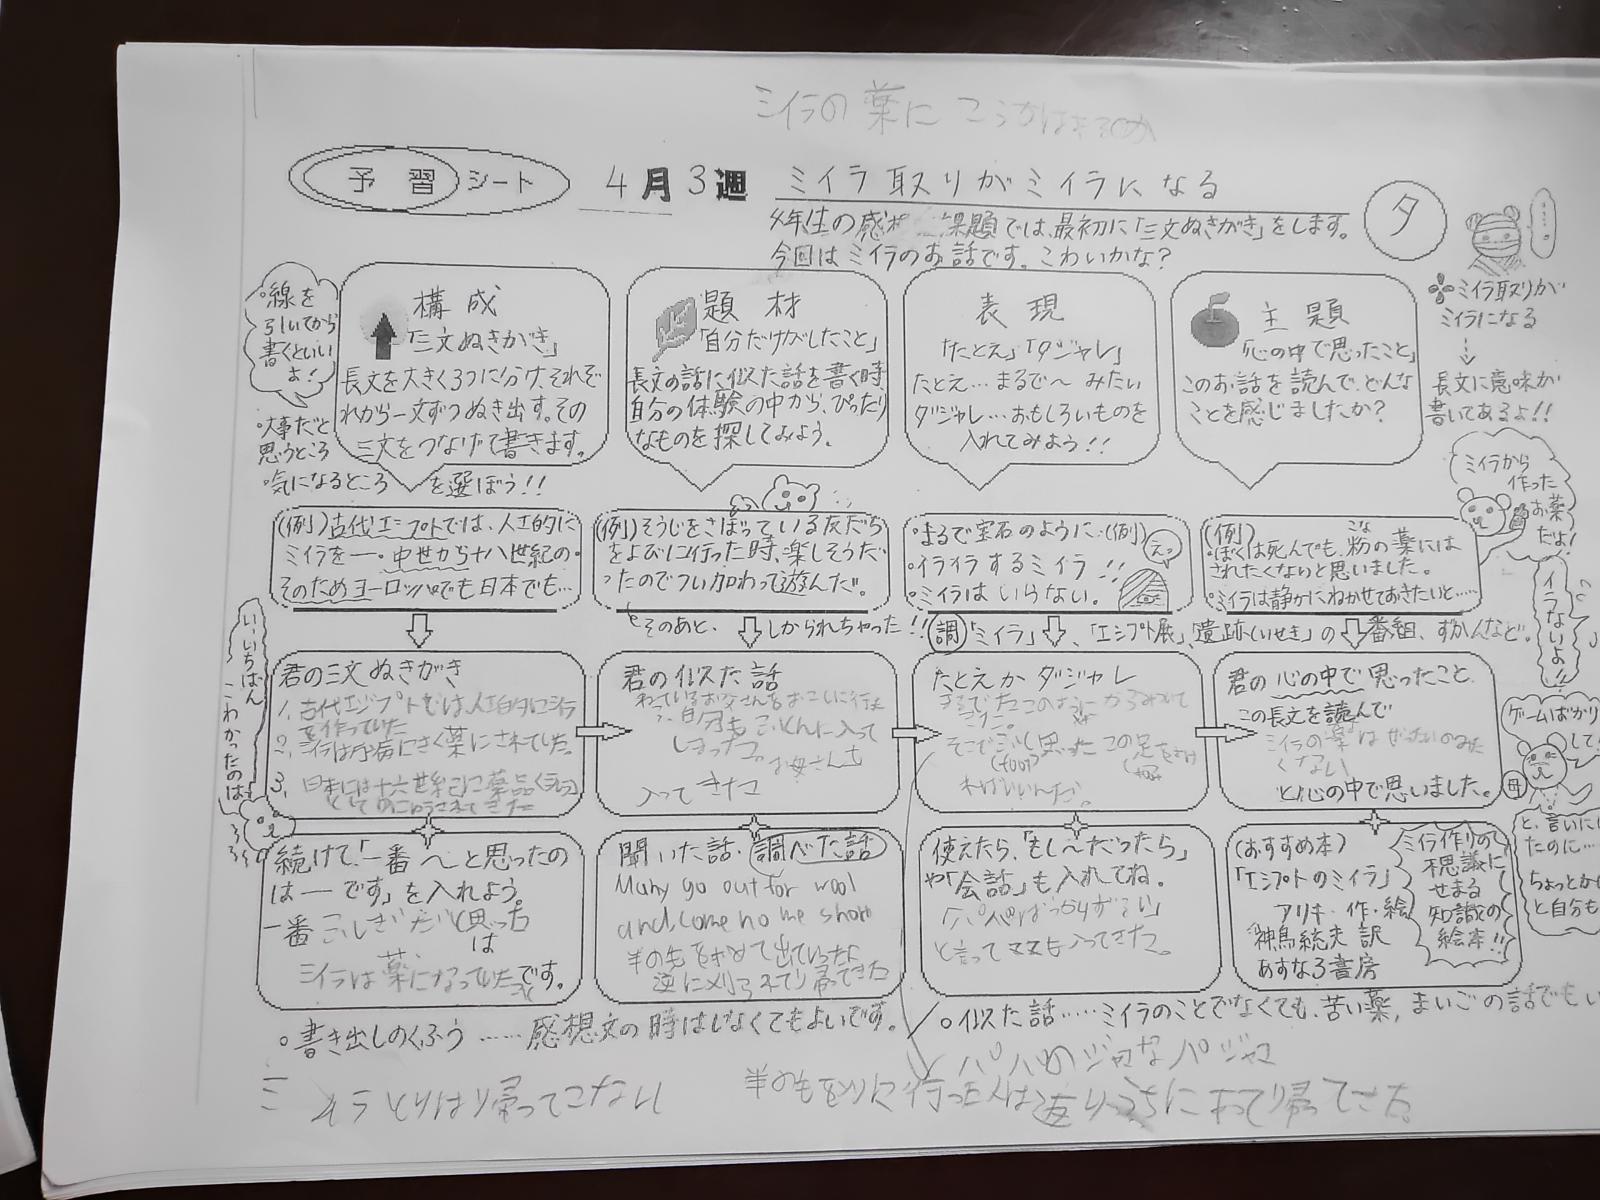 ミイラの薬に こうかはあるのか
予習シート 4月3週 ミイラ取りがミイラになる
タ
4年生の感 課題では、最初に「三文ぬきがき」をします。
今回はミイラのお話です。こわいかな?
・線を
引いてから
書くといい
よ!
・大事だと
思うところ
・気になるところ を選ぼう!!
構成
「三文ぬきがき」
長文を大きく3つに分け、それぞ
れから一文ずつぬき出す。その
三文をつなげて書きます。
題材
「自分だけがしたこと」
長文の話に似た話を書く時、
自分の体験の中から、ぴったり
なものを探してみよう。
表現
「たとえ」「ダジャレ」
たとえ…まるで〜みたい
ダジャレ…おもしろいものを
入れてみよう!!
主題
「心の中で思ったこと」
このお話を読んで、どんな
ことを感じましたか?
ミイラ取りが
ミイラになる
長文に意味が
書いてあるよ!!
ミイラから
作った
お薬
だよ!
イラないよ!!
(例)古代エジプトでは、人工的に
ミイラを一・中世から十八世紀の・
そのためヨーロッパでも日本でも…
(例)そうじをさぼっている友だち
をよびに行った時、楽しそうだ
ったのでつい加わって遊んだ。
そのあと、しかられちゃった!!
・まるで宝石のように(例)
・イライラするミイラ!!
・ミイラはいらない。
えっ
(例)
・ぼくは死んでも、粉の薬には
こな
されたくないと思いました。
・ミイラは静かにねかせておきたいと……
調「ミイラ」、「エジプト展」、「遺跡(いせき)」の番組、ずかんなど。
いちばん
こわかったのは
君の三文ぬきがき
1. 古代エジプトでは、人工的にミイラ
を作っていた
2. ミイラは万病にきく薬にされていた。
3. 日本には十六世紀に薬品
として されてきた
君の似た話
ねているお父さんをおこしに行った
ら、自分もふとんに入って
しまった。 お母さんも
入ってきた
たとえかダジャレ
きた。
そこで
(foot)
ればいいんだ。
君の心の中で思ったこと
この長文を読んで
ミイラの薬はぜったいのみた
くない
と心の中で思いました。
ゲームばかり
して!
母
と、言いに
たのに…
ちょっとか
と自分も
続けて、「一番〜と思ったの
は―です」を入れよう。
一番ふしぎだと思った
は
ミイラは薬になっていた です。
聞いた話・調べた話
Many go out for wool
and come home shorn
羊の毛をもとめて出ていったら
逆に刈られて帰ってきた
使えたら、「もし〜だったら」
や「会話」も入れてね。
「パパばっかりずるい」
と言って も入ってきた。
(おすすめ本)
「エジプトのミイラ」
アリキ・作・絵
神鳥統夫 訳
あすなろ書房
ミイラ作りの
不思議に
せまる
知識の
絵本!!
・書き出しのくふう……感想文の時はしなくてもよいです。
・似た話……ミイラのことでなくても、苦い薬、まいごの話でもい
パパのジャマなパジャマ
ミイラとりは 帰ってこない
羊の毛をとりに行った人は返りうちにあって帰ってきた。